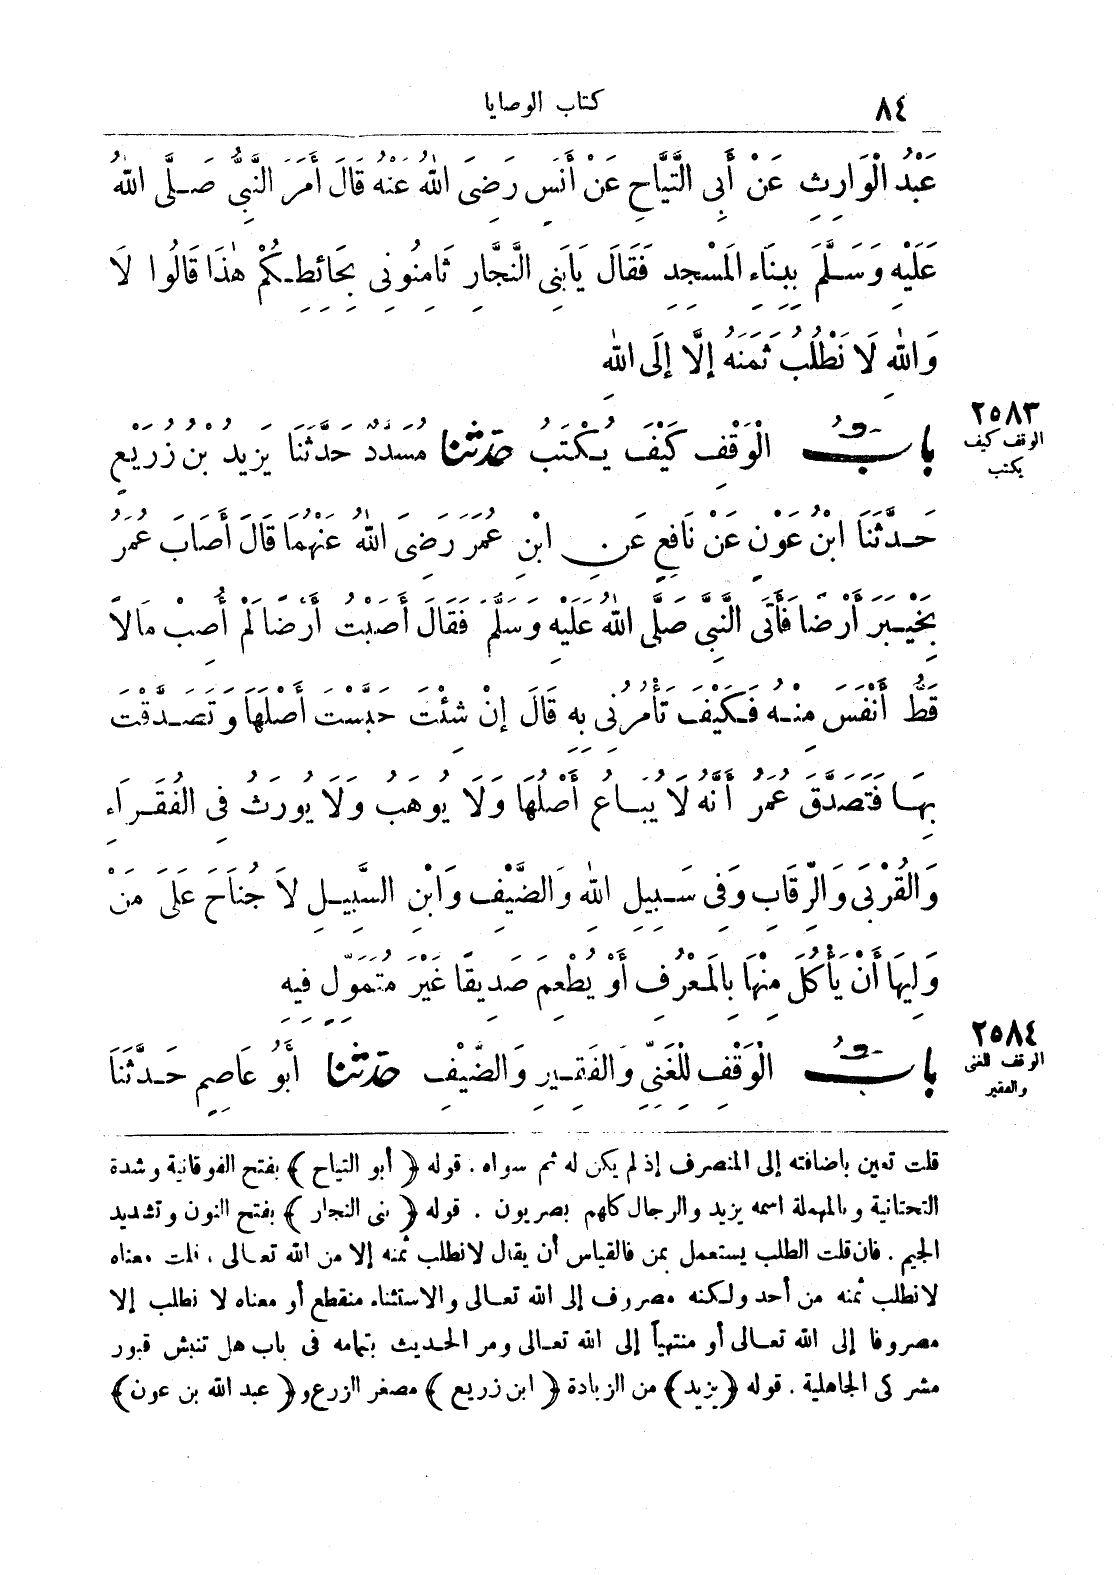 ٨٤
كتاب الوصايا
عَبْدُ الْوَارِثِ عَنْ أَبِى التَّيَّاحِ عَنْ أَنَسٍ رَضِىَ اللهُ عَنْهُ قَالَ أَمَرَ النَّبِىُّ صَلَّى اللهُ
عَلَيْهِ وَسَلَّمَ بِبِنَاءِ الْمَسْجِدِ فَقَالَ يَابَنِى النَّجَّارِ ثَامِنُونِى بِحَائِطِكُمْ هٰذَا قَالُوا لَا
وَاللهِ لَا نَطْلُبُ ثَمَنَهُ إِلَّا إِلَى اللهِ
٢٥٨٣
الوقف كيف
يكتب
بابُ الْوَقْفِ كَيْفَ يُكْتَبُ حَدَّثَنَا مُسَدَّدٌ حَدَّثَنَا يَزِيدُ بْنُ زُرَيْعٍ
حَدَّثَنَا ابْنُ عَوْنٍ عَنْ نَافِعٍ عَنِ ابْنِ عُمَرَ رَضِىَ اللهُ عَنْهُمَا قَالَ أَصَابَ عُمَرُ
بِخَيْبَرَ أَرْضًا فَأَتَى النَّبِىَّ صَلَّى اللهُ عَلَيْهِ وَسَلَّمَ فَقَالَ أَصَبْتُ أَرْضًا لَمْ أُصِبْ مَالًا
قَطُّ أَنْفَسَ مِنْهُ فَكَيْفَ تَأْمُرُنِى بِهِ قَالَ إِنْ شِئْتَ حَبَّسْتَ أَصْلَهَا وَتَصَدَّقْتَ
بِهَا فَتَصَدَّقَ عُمَرُ أَنَّهُ لَا يُبَاعُ أَصْلُهَا وَلَا يُوهَبُ وَلَا يُورَثُ فِى الْفُقَرَاءِ
وَالْقُرْبَى وَالرِّقَابِ وَفِى سَبِيلِ اللهِ وَالضَّيْفِ وَابْنِ السَّبِيلِ لَا جُنَاحَ عَلَى مَنْ
وَلِيَهَا أَنْ يَأْكُلَ مِنْهَا بِالْمَعْرُوفِ أَوْ يُطْعِمَ صَدِيقًا غَيْرَ مُتَمَوِّلٍ فِيهِ
٢٥٨٤
الوقف للغنى
والفقير
بابُ الْوَقْفِ لِلْغَنِىِّ وَالْفَقِيرِ وَالضَّيْفِ حَدَّثَنَا أَبُو عَاصِمٍ حَدَّثَنَا
قلت تعين باضافته إلى المنصرف إذ لم يكن له ثم سواه . قوله ﴿أبو التياح﴾ بفتح الفوقانية وشدة
التحتانية وبالمهملة اسمه يزيد والرجال كلهم بصريون . قوله ﴿بنى النجار﴾ بفتح النون وتشديد
الجيم . فان قلت الطلب يستعمل بمن فالقياس أن يقال لا نطلب ثمنه إلا من الله تعالى ، قلت معناه
لا نطلب ثمنه من أحد ولكنه مصروف إلى الله تعالى والاستثناء منقطع أو معناه لا نطلب إلا
مصروفا إلى الله تعالى أو منتهياً إلى الله تعالى ومر الحديث بتمامه فى باب هل تنبش قبور
مشركى الجاهلية . قوله ﴿يزيد﴾ من الزيادة ﴿ابن زريع﴾ مصغر الزرع و﴿عبد الله بن عون﴾